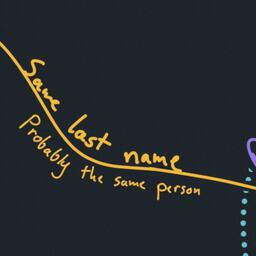 Same last name
Probably the same person